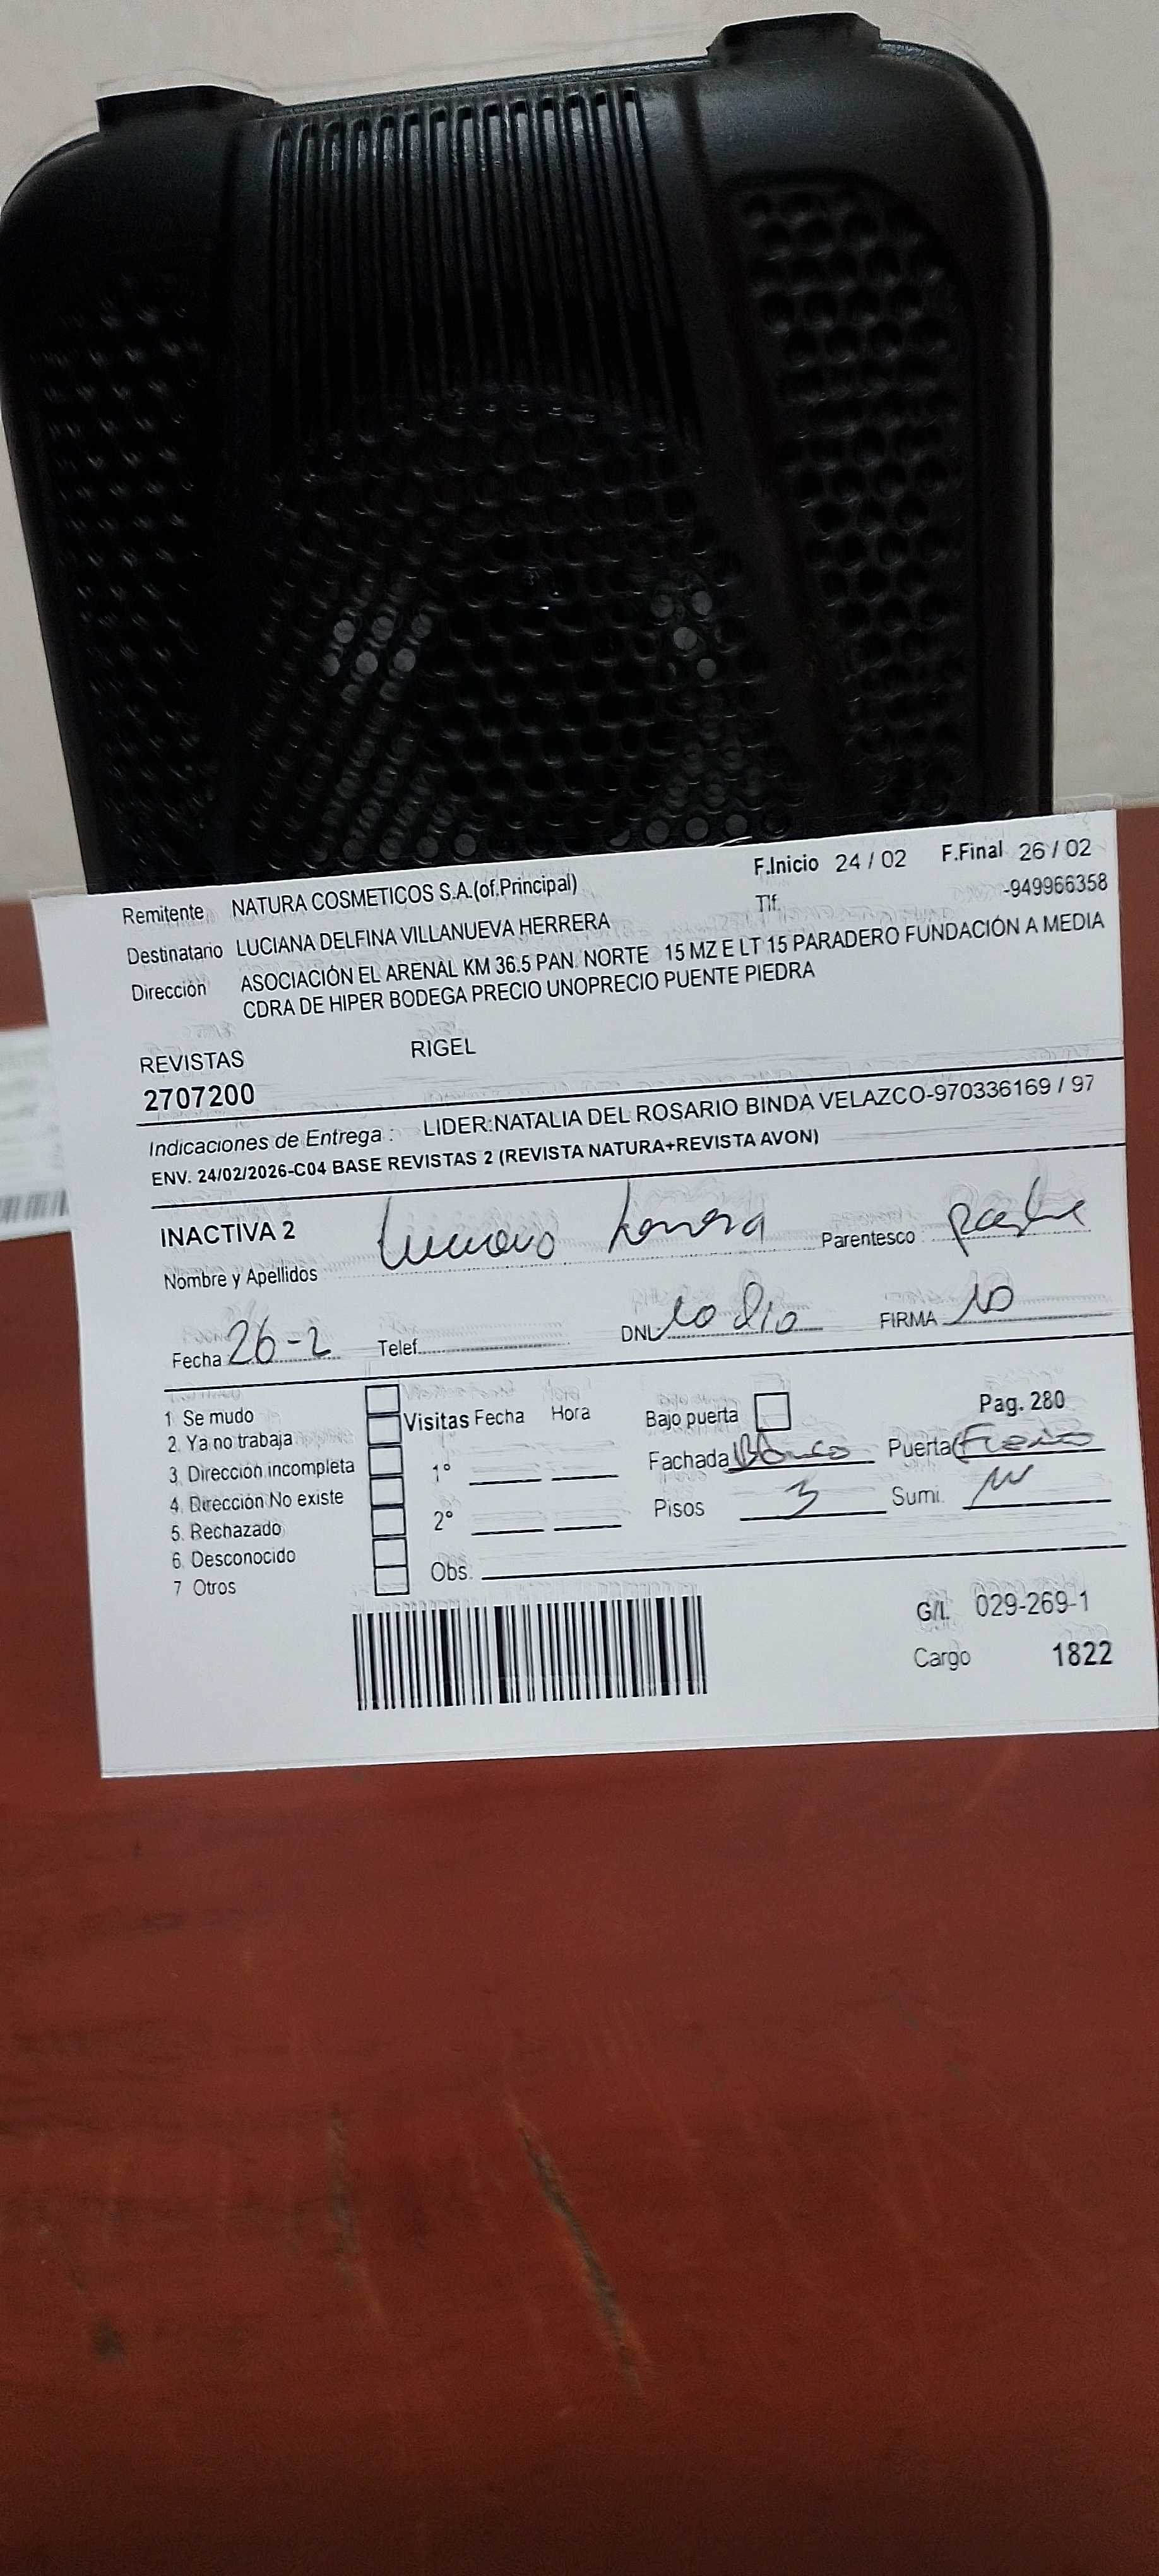 Remitente NATURA COSMETICOS S.A.(of.Principal) F.Inicio 24 / 02 F.Final 26 / 02
Destinatario LUCIANA DELFINA VILLANUEVA HERRERA Tlf. -949966358
Dirección ASOCIACIÓN EL ARENAL KM 36.5 PAN. NORTE 15 MZ E LT 15 PARADERO FUNDACIÓN A MEDIA
CDRA DE HIPER BODEGA PRECIO UNOPRECIO PUENTE PIEDRA
REVISTAS RIGEL
2707200
Indicaciones de Entrega : LIDER:NATALIA DEL ROSARIO BINDA VELAZCO-970336169 / 97
ENV. 24/02/2026-C04 BASE REVISTAS 2 (REVISTA NATURA+REVISTA AVON)
INACTIVA 2
Nombre y Apellidos Parentesco
Fecha 26-2 Telef. DNI. FIRMA
1 Se mudo
2. Ya no trabaja Visitas Fecha Hora Bajo puerta Pag. 280
3. Dirección incompleta 1° Fachada Puerta
4. Dirección No existe
5. Rechazado 2° Pisos 3 Sumi.
6. Desconocido
7 Otros Obs.
G/I. 029-269-1
Cargo 1822